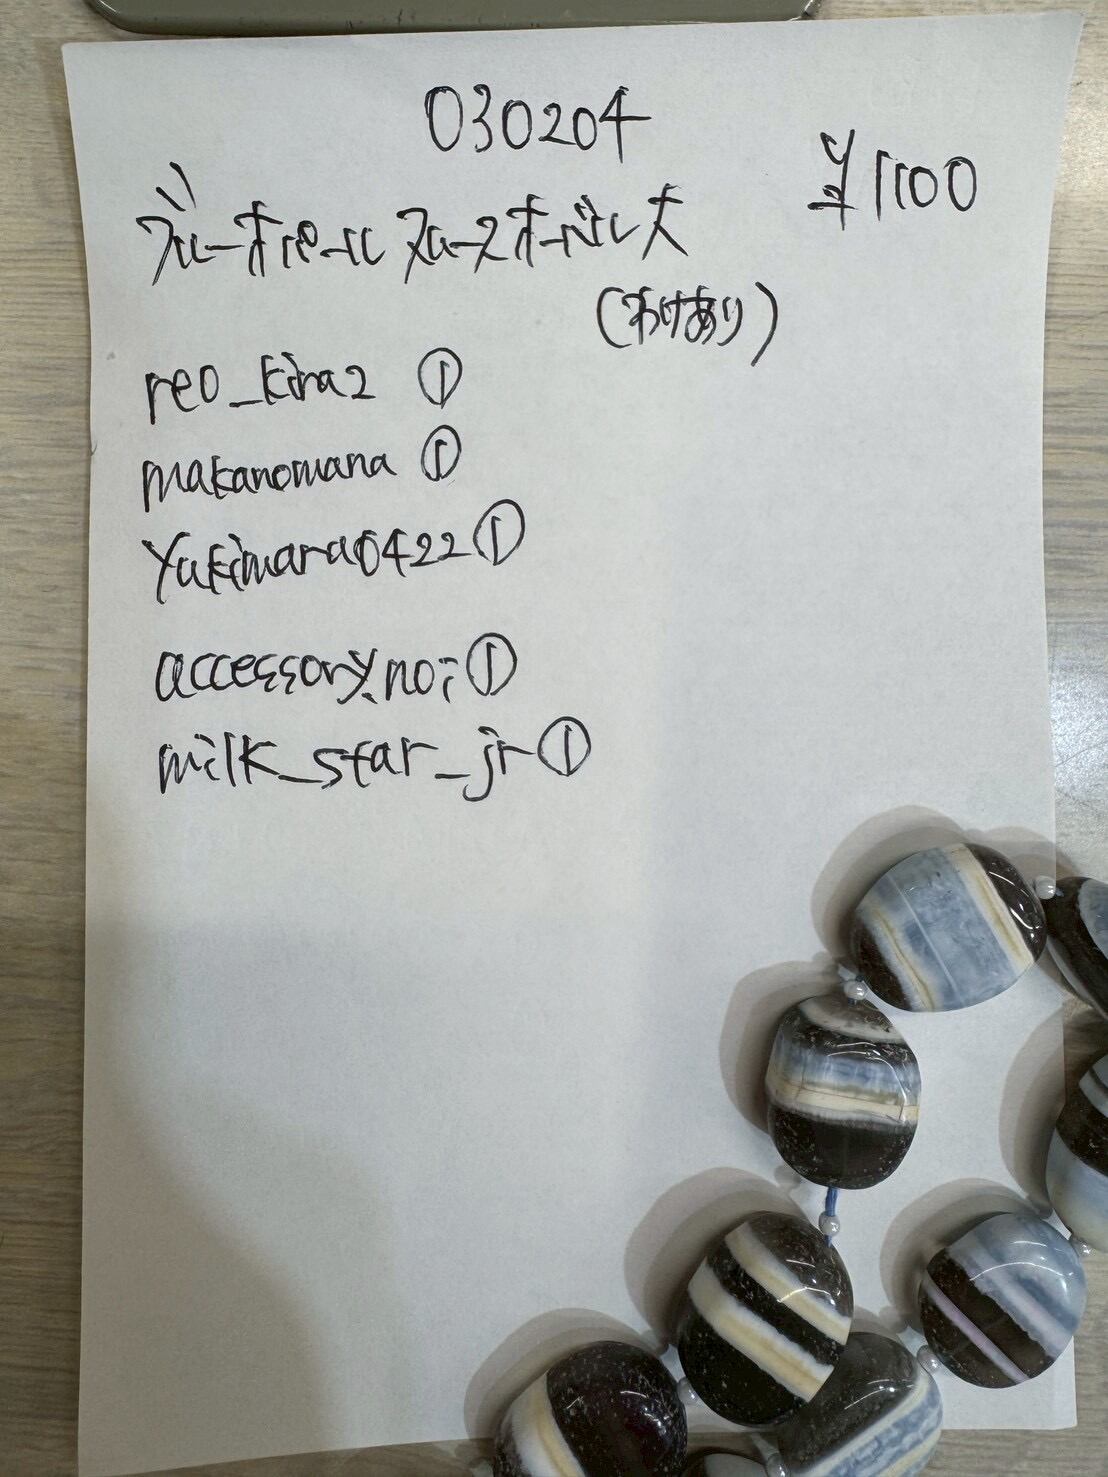 030204
¥1100
ブルーオパール ルースオーバル大
(わけあり)
reo_kira2 ①
makanomana ①
yukimara0422 ①
accessory.noi ①
milk_star_jr ①